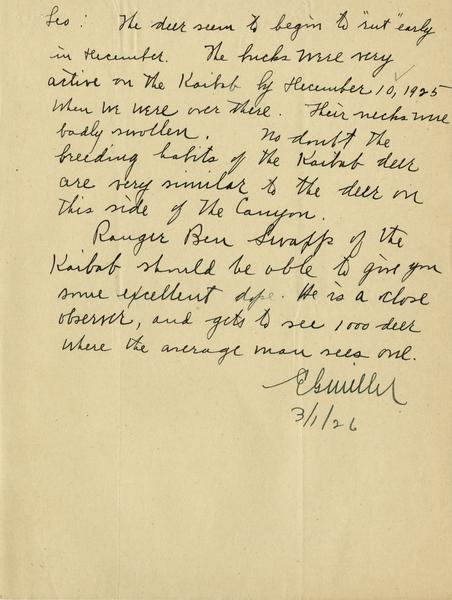 Geo: The deer seem to begin to "rut" early
in December. The bucks were very
active on the Kaibab by December 10, 1925
when we were over there. Their necks were
badly swollen. No doubt the
breeding habits of the Kaibab deer
are very similar to the deer on
this side of the Canyon.
Ranger Ben Swapp of the
Kaibab should be able to give you
some excellent dope. He is a close
observer, and gets to see 1000 deer
where the average man sees one.
EGMiller
3/1/26